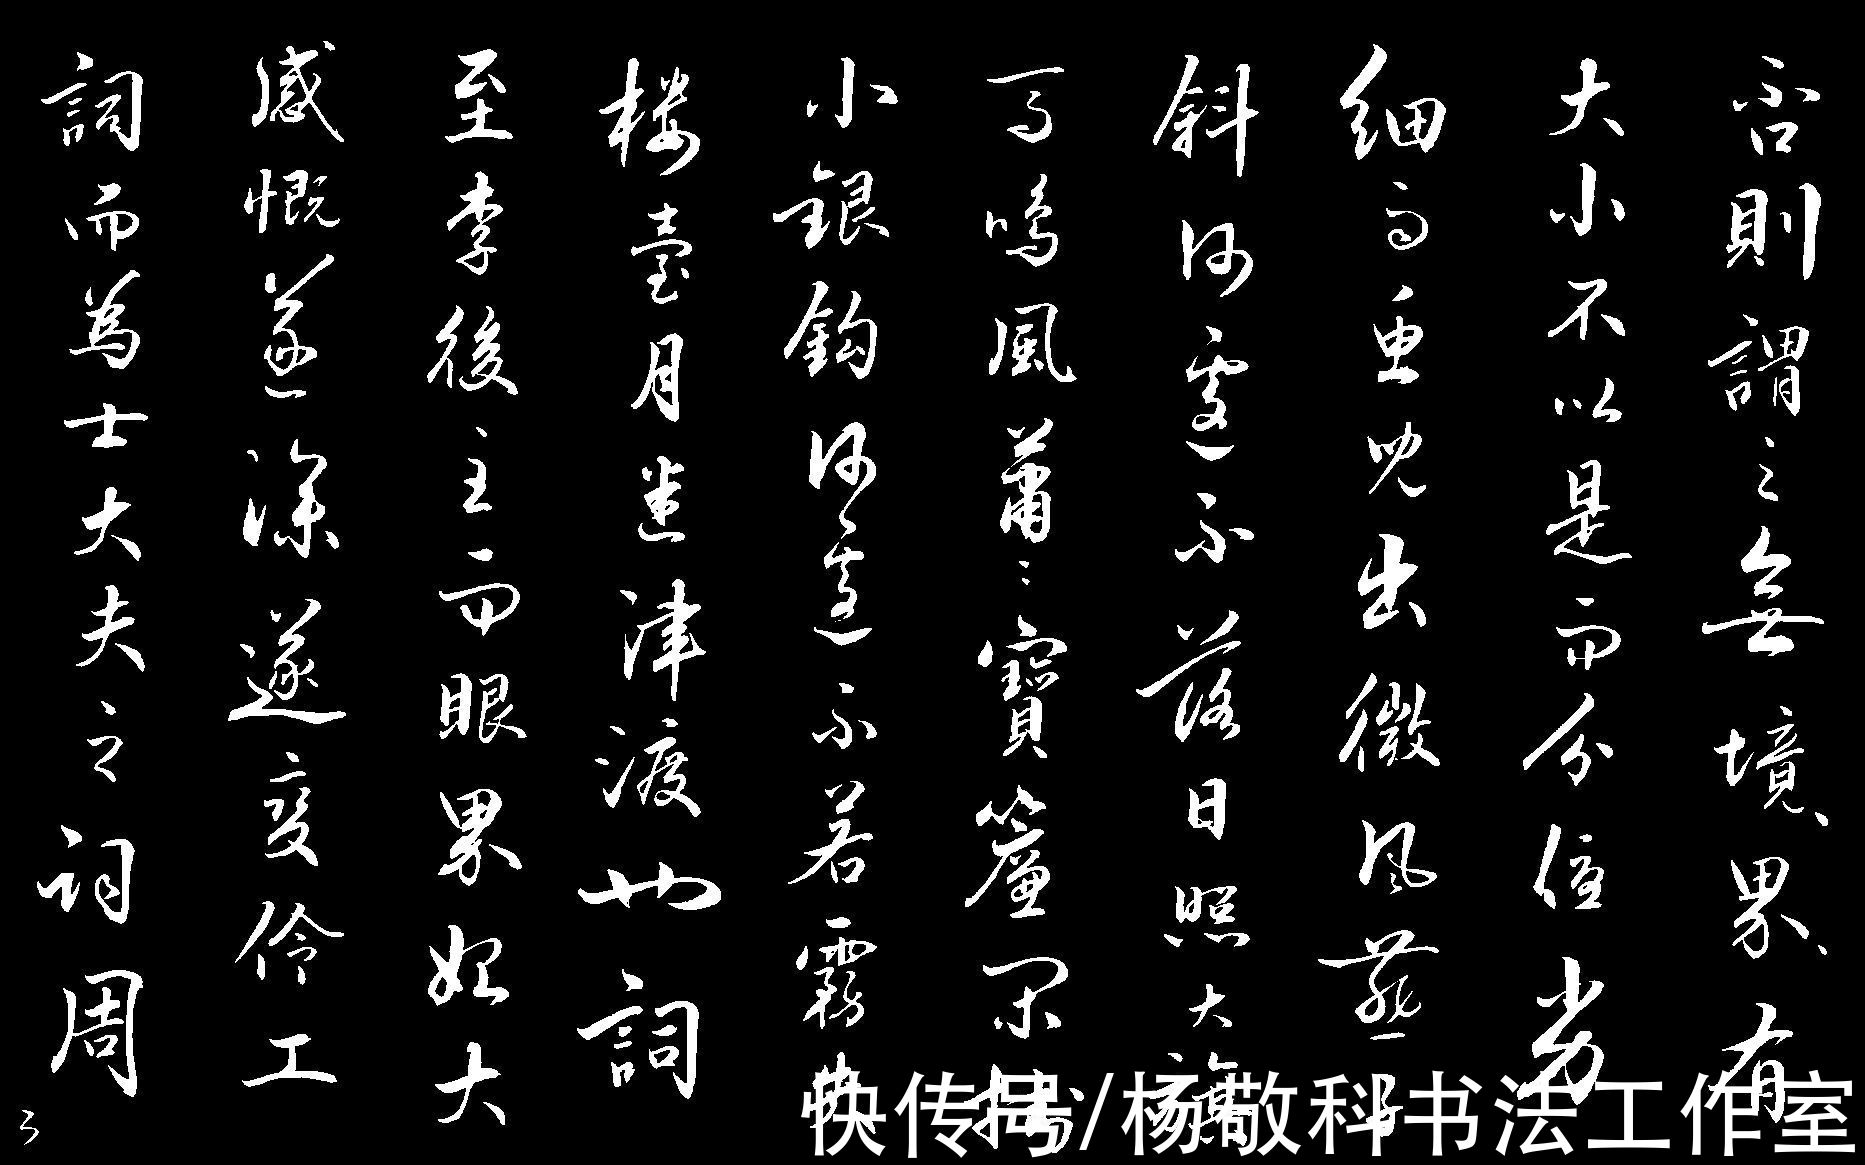 否則謂之無境界有
大小不以是而分優劣
細雨魚兒出微風燕子
斜何遽不若落日照大旗
馬鳴風蕭〻寶簾閑掛
小銀鈎何遽不若霧失
楼臺月迷津渡也詞
至李後主而眼界始大
感慨遂深遂變伶工
詞而為士大夫之詞周
快传号/杨敬科书法工作室